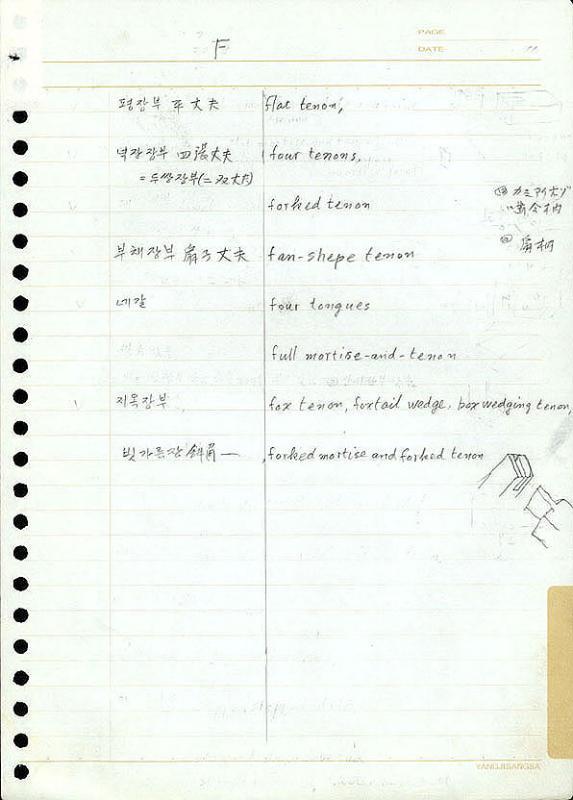 PAGE
DATE
F
평장부 平丈夫 flat tenon,
넉장장부 四張丈夫 four tenons,
= 두쌍장부(二双丈夫)
forked tenon
부채장부 扇子丈夫 fan-shepe tenon
扇枘
네갈 four tongues
full mortise-and-tenon
지옥장부 fox tenon, foxtail wedge, box wedging tenon,
빗가름장 斜角一 forked mortise and forked tenon